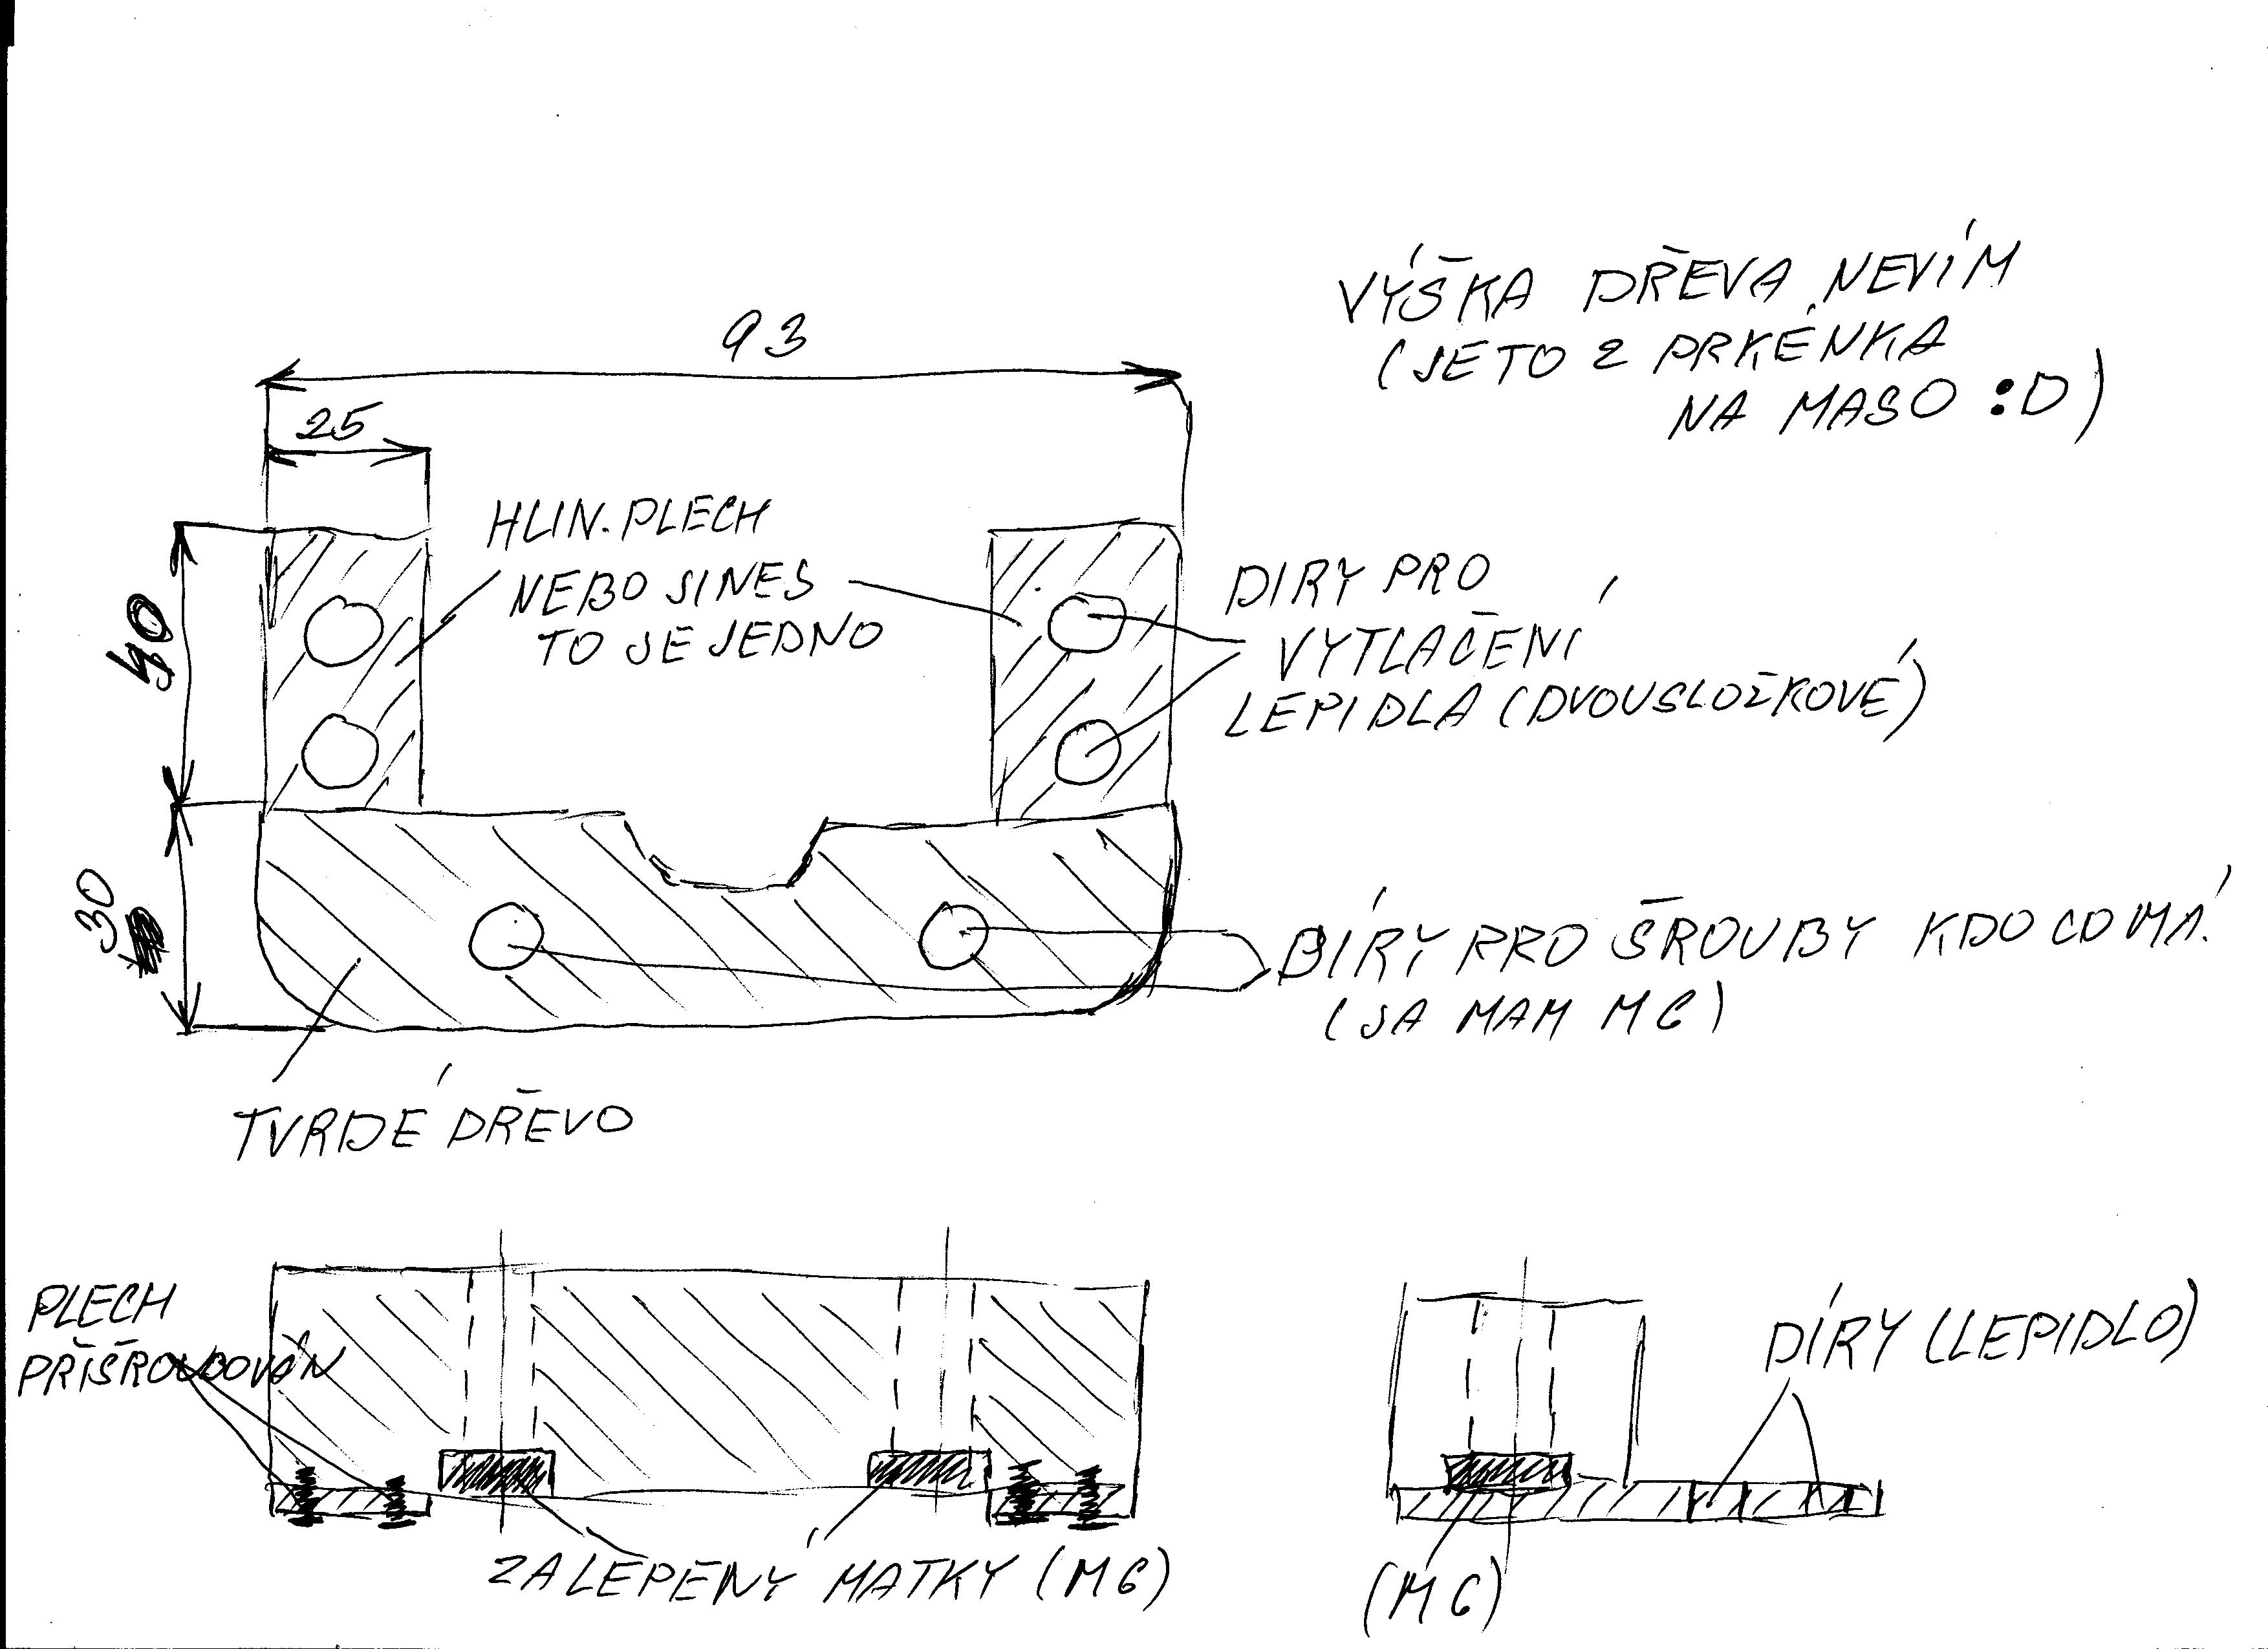 93
25
VÝŠKA DŘEVA NEVÍM
(JE TO Z PRKÉNKA
NA MASO :D)
HLIN. PLECH
NEBO JINES
TO JE JEDNO
40
DIRY PRO
VYTLAČENÍ
LEPIDLA (DVOUSLOZKOVÉ)
30
DÍRY PRO ŠROUBY KDO CO MÁ.
(JA MAM M6)
TVRDÉ DŘEVO
PLECH
PŘIŠROUBOVÁN
DÍRY (LEPIDLO)
ZALEPENÝ MATKY (M6)
(M6)